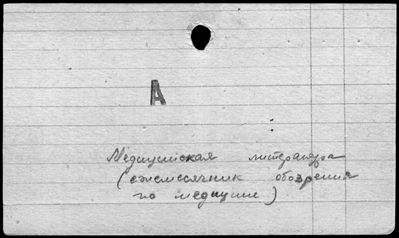 А
Медицинская литература
(ежемесячник обозрения
по медицине)